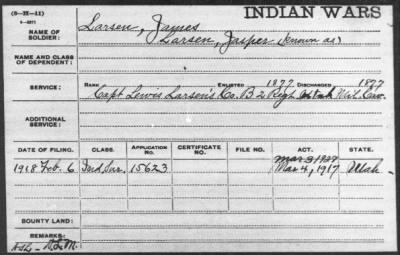 (9-IX-11)
INDIAN WARS
Larsen, James
NAME OF SOLDIER:
Larsen, Jasper (known as)
NAME AND CLASS OF DEPENDENT:
RANK ENLISTED 1877 DISCHARGED, 1877
SERVICE: Capt Lewis Larsen's Co. B 2 Regt Utah Mil. Cav.
ADDITIONAL SERVICE:
DATE OF FILING. CLASS. APPLICATION NO. CERTIFICATE NO. FILE NO. ACT. STATE.
Mar 3 1927
1918 Feb. 6 Ind Sur. 15623 Mar 4, 1917 Utah
BOUNTY LAND:
REMARKS: